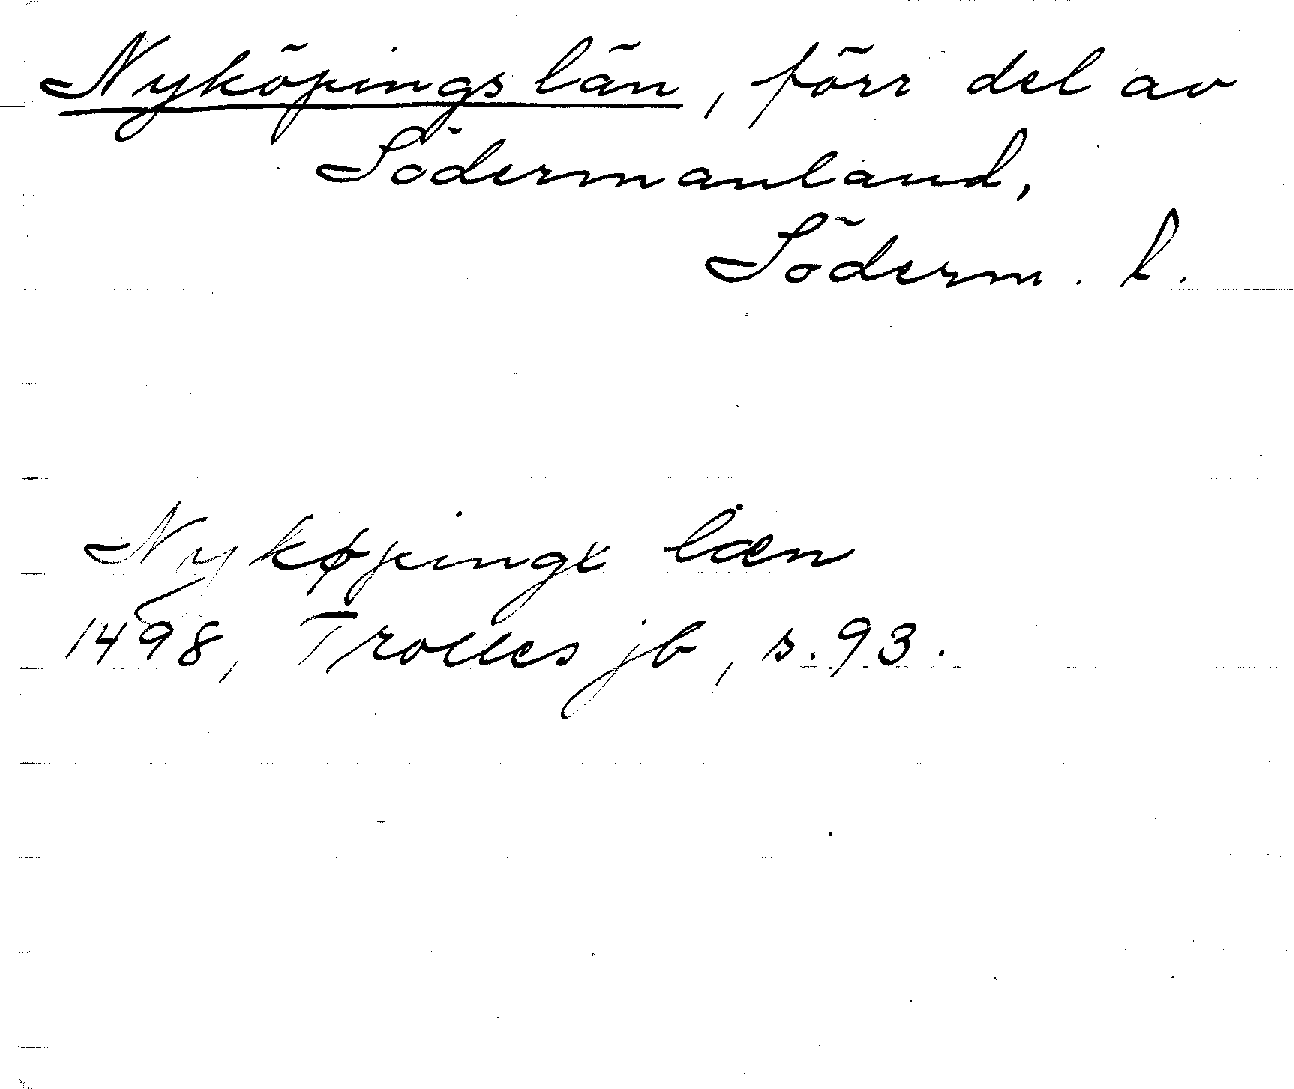 Nyköpings län, förr del av
Södermanland,
Söderm. l.
Nykøpingx læn
1498, Trolles jb, s. 93.